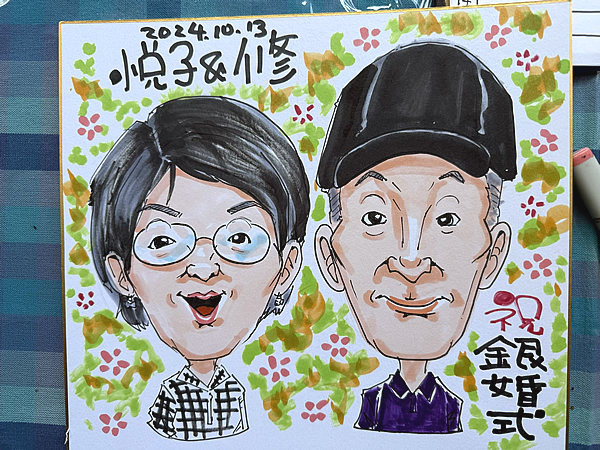 2024.10.13
悦子&修
祝
銀婚式